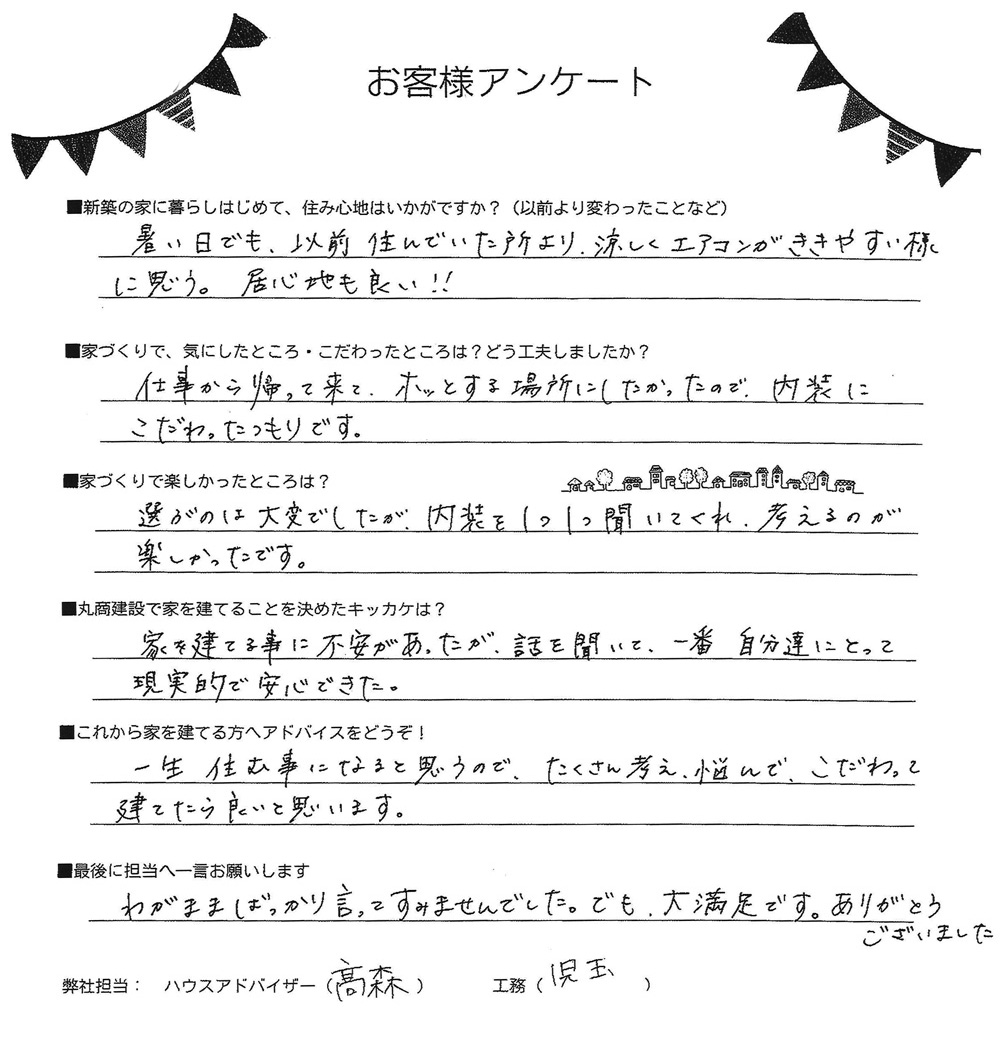 お客様アンケート
■新築の家に暮らしはじめて、住み心地はいかがですか？（以前より変わったことなど）
暑い日でも、以前 住んでいた所より、涼しくエアコンがききやすい様
に思う。 居心地も良い!!
■家づくりで、気にしたところ・こだわったところは？どう工夫しましたか？
仕事から帰って来て、ホッとする場所にしたかったので、内装に
こだわったつもりです。
■家づくりで楽しかったところは？
選ぶのは大変でしたが、内装を1つ1つ聞いてくれ、考えるのが
楽しかったです。
■丸商建設で家を建てることを決めたキッカケは？
家を建てる事に不安があったが、話を聞いて、一番 自分達にとって
現実的で安心できた。
■これから家を建てる方へアドバイスをどうぞ！
一生 住む事になると思うので、たくさん考え、悩んで、こだわって
建てたら良いと思います。
■最後に担当へ一言お願いします
わがままばっかり言ってすみませんでした。でも、大満足です。ありがとう
ございました
弊社担当： ハウスアドバイザー（髙森） 工務（児玉 ）